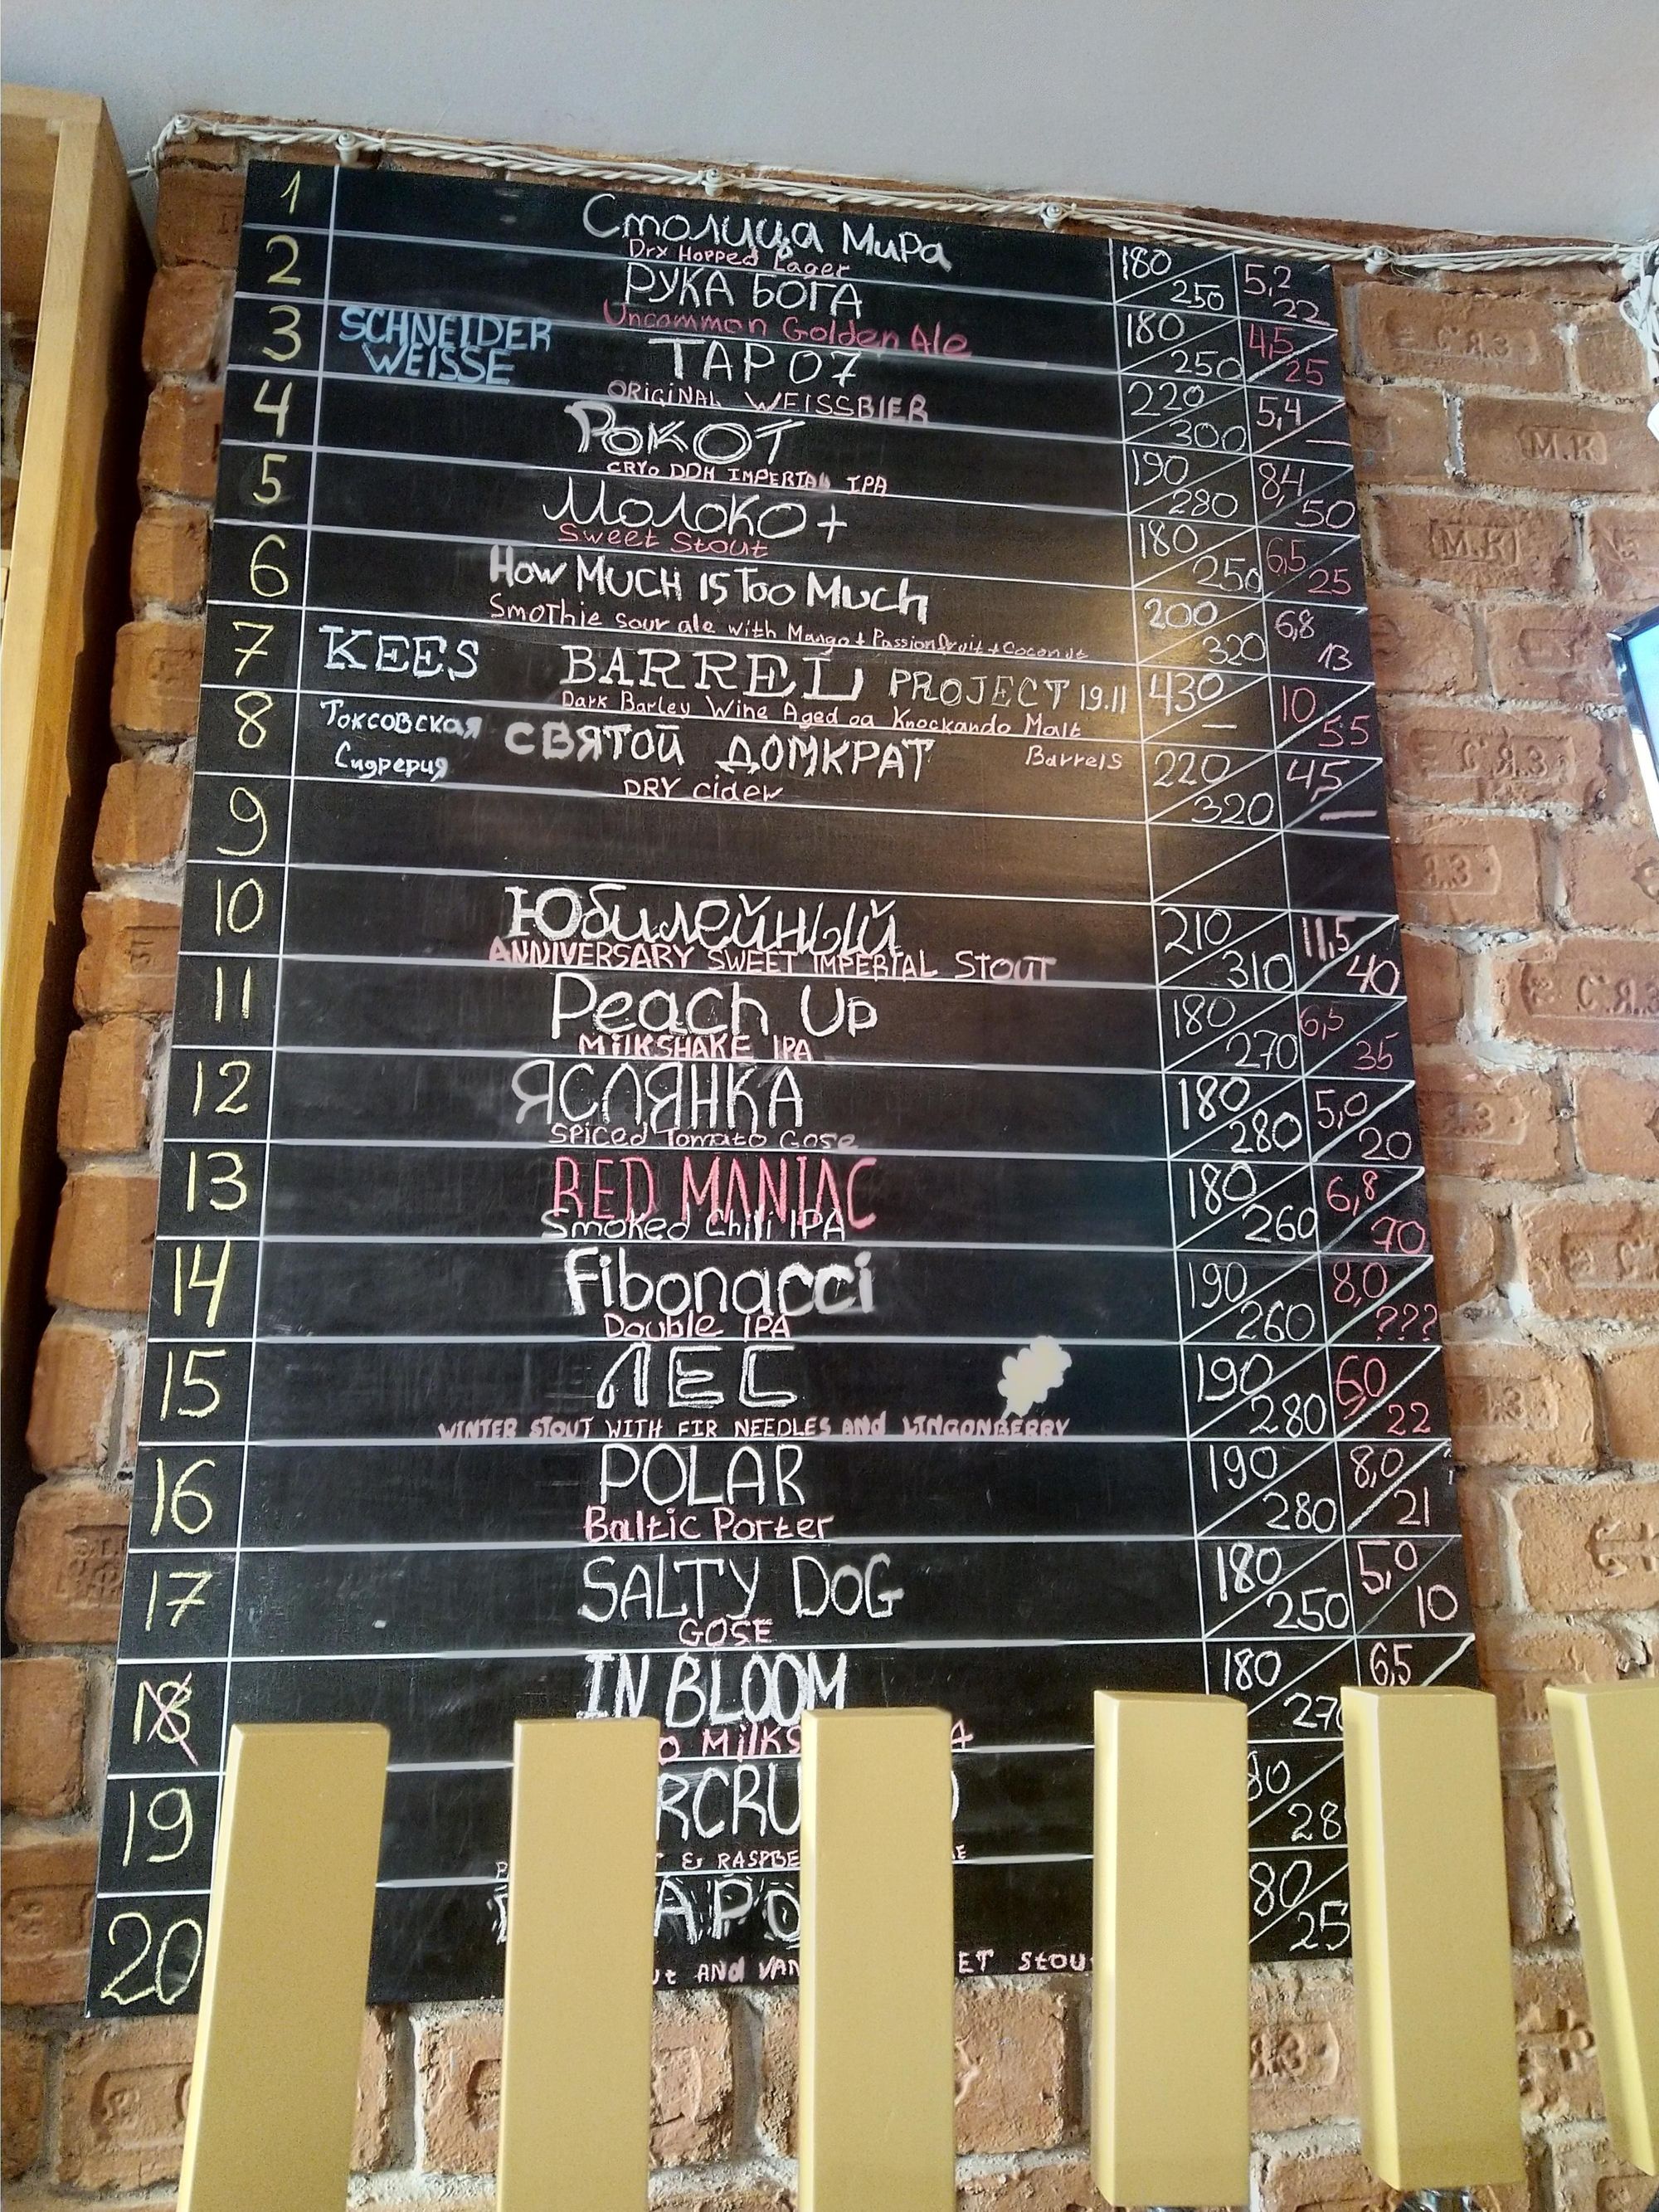 1 Столица Мира 180 5,2
Dry Hopped Lager 250 22
2 РУКА БОГА 180 4,5
Uncommon Golden Ale 250 25
3 SCHNEIDER WEISSE TAP 07 220 5,4
ORIGINAL WEISSBIER 300 —
4 РОКОТ 190 8,4
CRYO DDH IMPERIAL IPA 280 50
5 Молоко+ 180 6,5
Sweet Stout 250 25
6 How MUCH is Too Much 200 6,8
Smothie sour ale with Mango + Passionfruit + Coconut 320 13
7 KEES BARREL PROJECT 19.11 430 10
Dark Barley Wine Aged oa Knockando Malt Barrels — 55
8 Токсовская Сидрерия СВЯТОЙ ДОМКРАТ 220 4,5
DRY cider 320 —
9
10 Юбилейный 210 11,5
ANNIVERSARY SWEET IMPERIAL STOUT 310 40
11 Peach Up 180 6,5
MilKSHAKE IPA 270 35
12 ЯСЛЯНКА 180 5,0
Spiced Tomato Gose 280 20
13 RED MANIAC 180 6,8
Smoked Chili IPA 260 70
14 Fibonacci 190 8,0
Double IPA 260 ???
15 ЛЕС 190 6,0
WINTER STOUT WITH FIR NEEDLES ANd LINGONBERRY 280 22
16 POLAR 190 8,0
Baltic Porter 280 21
17 SALTY DOG 180 5,0
GOSE 250 10
18 IN BLOOM 180 6,5
270
19
& 28
20
ANd STOU 25